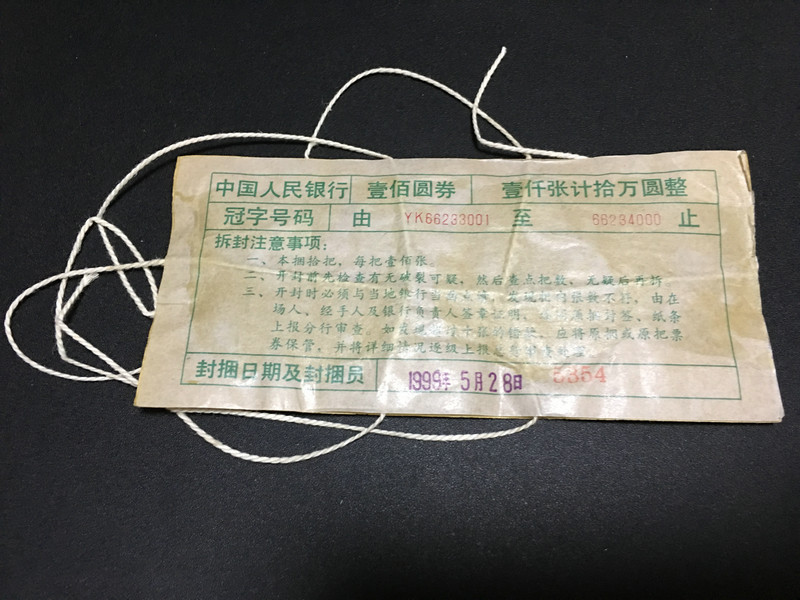 中国人民银行 壹佰圆券 壹仟张计拾万圆整
冠字号码 由 YK66233001 至 66234000 止
拆封注意事项:
一、本捆拾把,每把壹佰张。
二、开封前先检查有无破裂可疑,然后查点把数,无疑后再拆
三、开封时必须与当地银行当面点
不符,由在
场人、经手人及银行负责人签章证明,
封签、纸条
上报分行审查。如发现
十张的
应将原捆或原把票
券保管,并将详细情况逐级上报
封捆日期及封捆员 1999年5月28日 5354